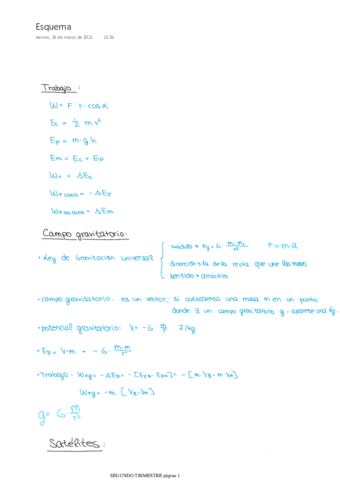 Esquema
viernes, 26 de marzo de 2021 13:36
Trabajo :
W = F · r · cos α
Ec = ½ m v²
Ep = m · g · h
Em = Ec + Ep
= ΔEc
= - ΔEp
= ΔEm
Campo gravitatorio:
• Ley de Gravitación universal
módulo → Fg = G · m₁·m₂/r² F = m·a
dirección → la de la recta que une las masas
sentido → atractivo
• campo gravitatorio: es un vector, si colocamos una masa m en un punto
donde ∃ un campo gravitatorio g, aparece una Fg.
• potencial gravitatorio: V = - G · J/kg
• Ep = V·m = - G ·
• Trabajo: = - ΔEp = - [ ] = - [m · VB - m · VA]
= - m [VB - VA]
g = G · m/r²
Satélites :
SEGUNDO TRIMESTRE página 1